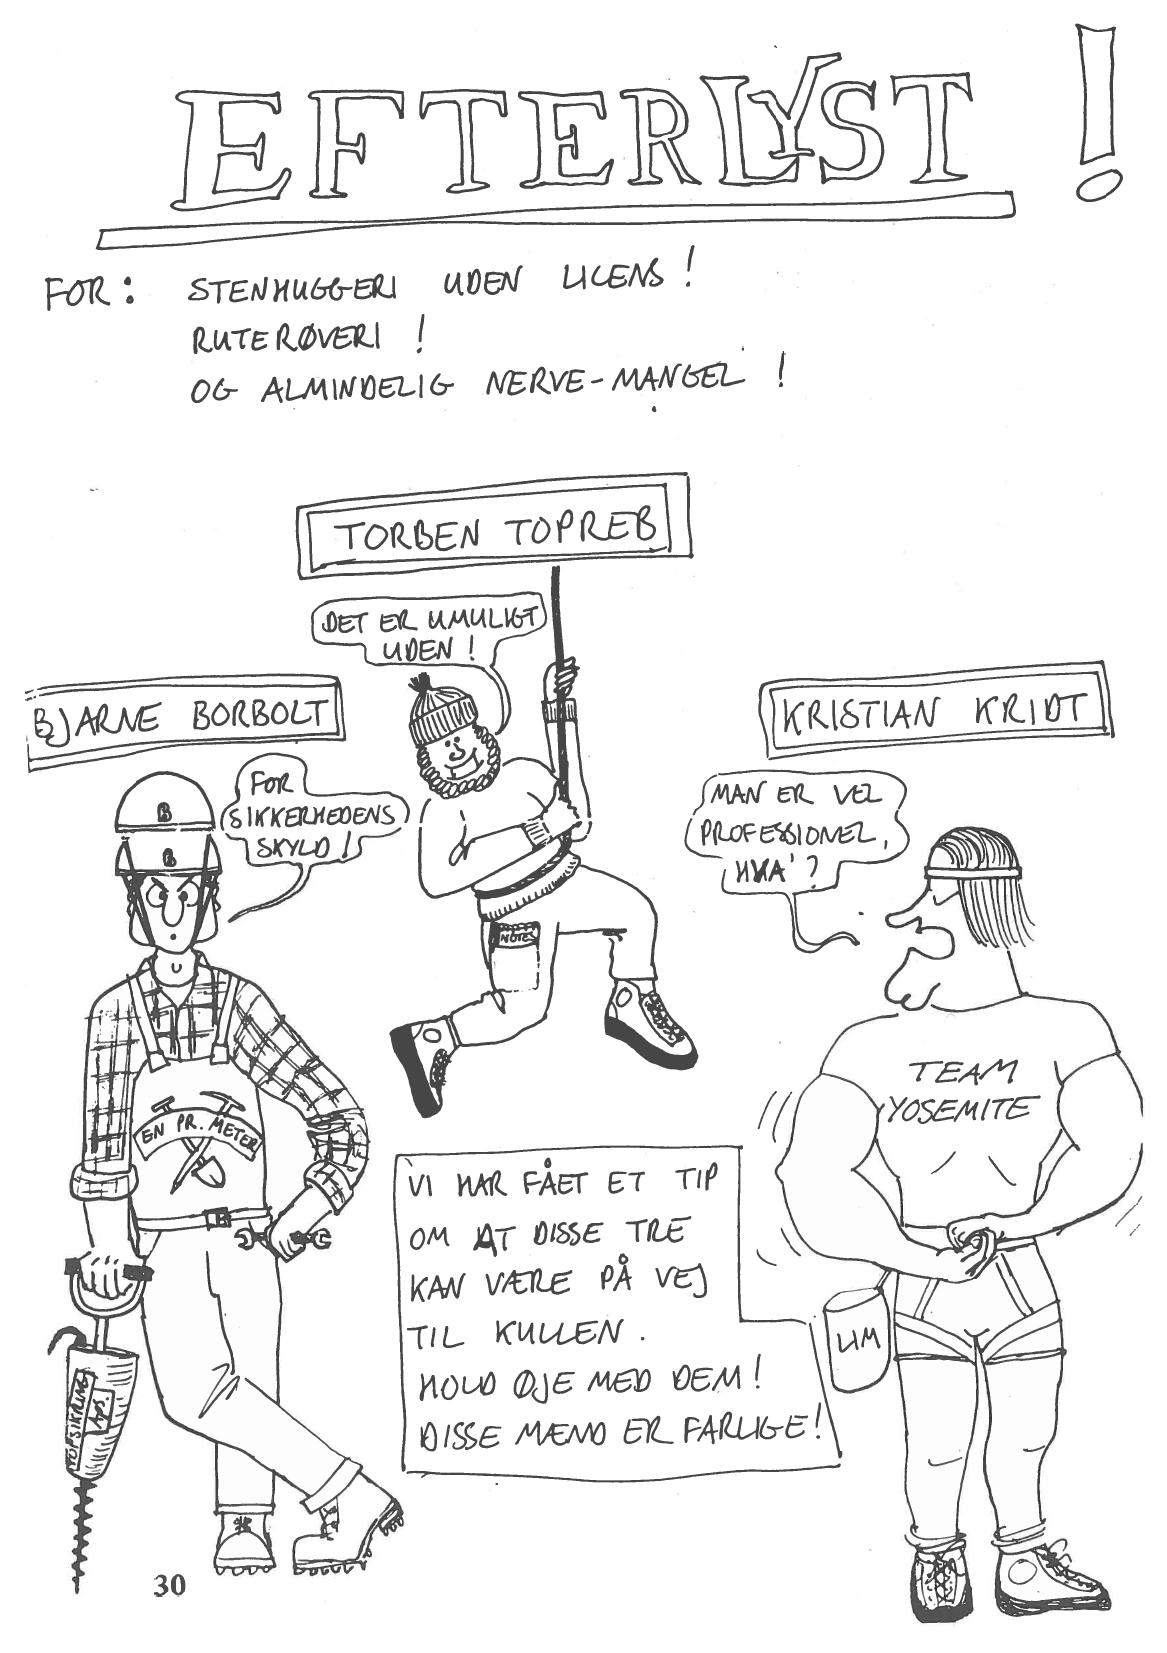 EFTERLYST !
FOR: STENHUGGERI UDEN LICENS !
RUTERØVERI !
OG ALMINDELIG NERVE-MANGEL !
TORBEN TOPREB
DET ER UMULIGT
UDEN !
BJARNE BORBOLT
FOR
SIKKERHEDENS
SKYLD !
KRISTIAN KRIDT
MAN ER VEL
PROFESSIONEL,
HVA' ?
B
B
NOTES
EN PR. METER
TEAM
YOSEMITE
VI HAR FÅET ET TIP
OM AT DISSE TRE
KAN VÆRE PÅ VEJ
TIL KULLEN.
HOLD ØJE MED DEM!
DISSE MÆND ER FARLIGE!
LIM
TOPSIKRING
APS.
30